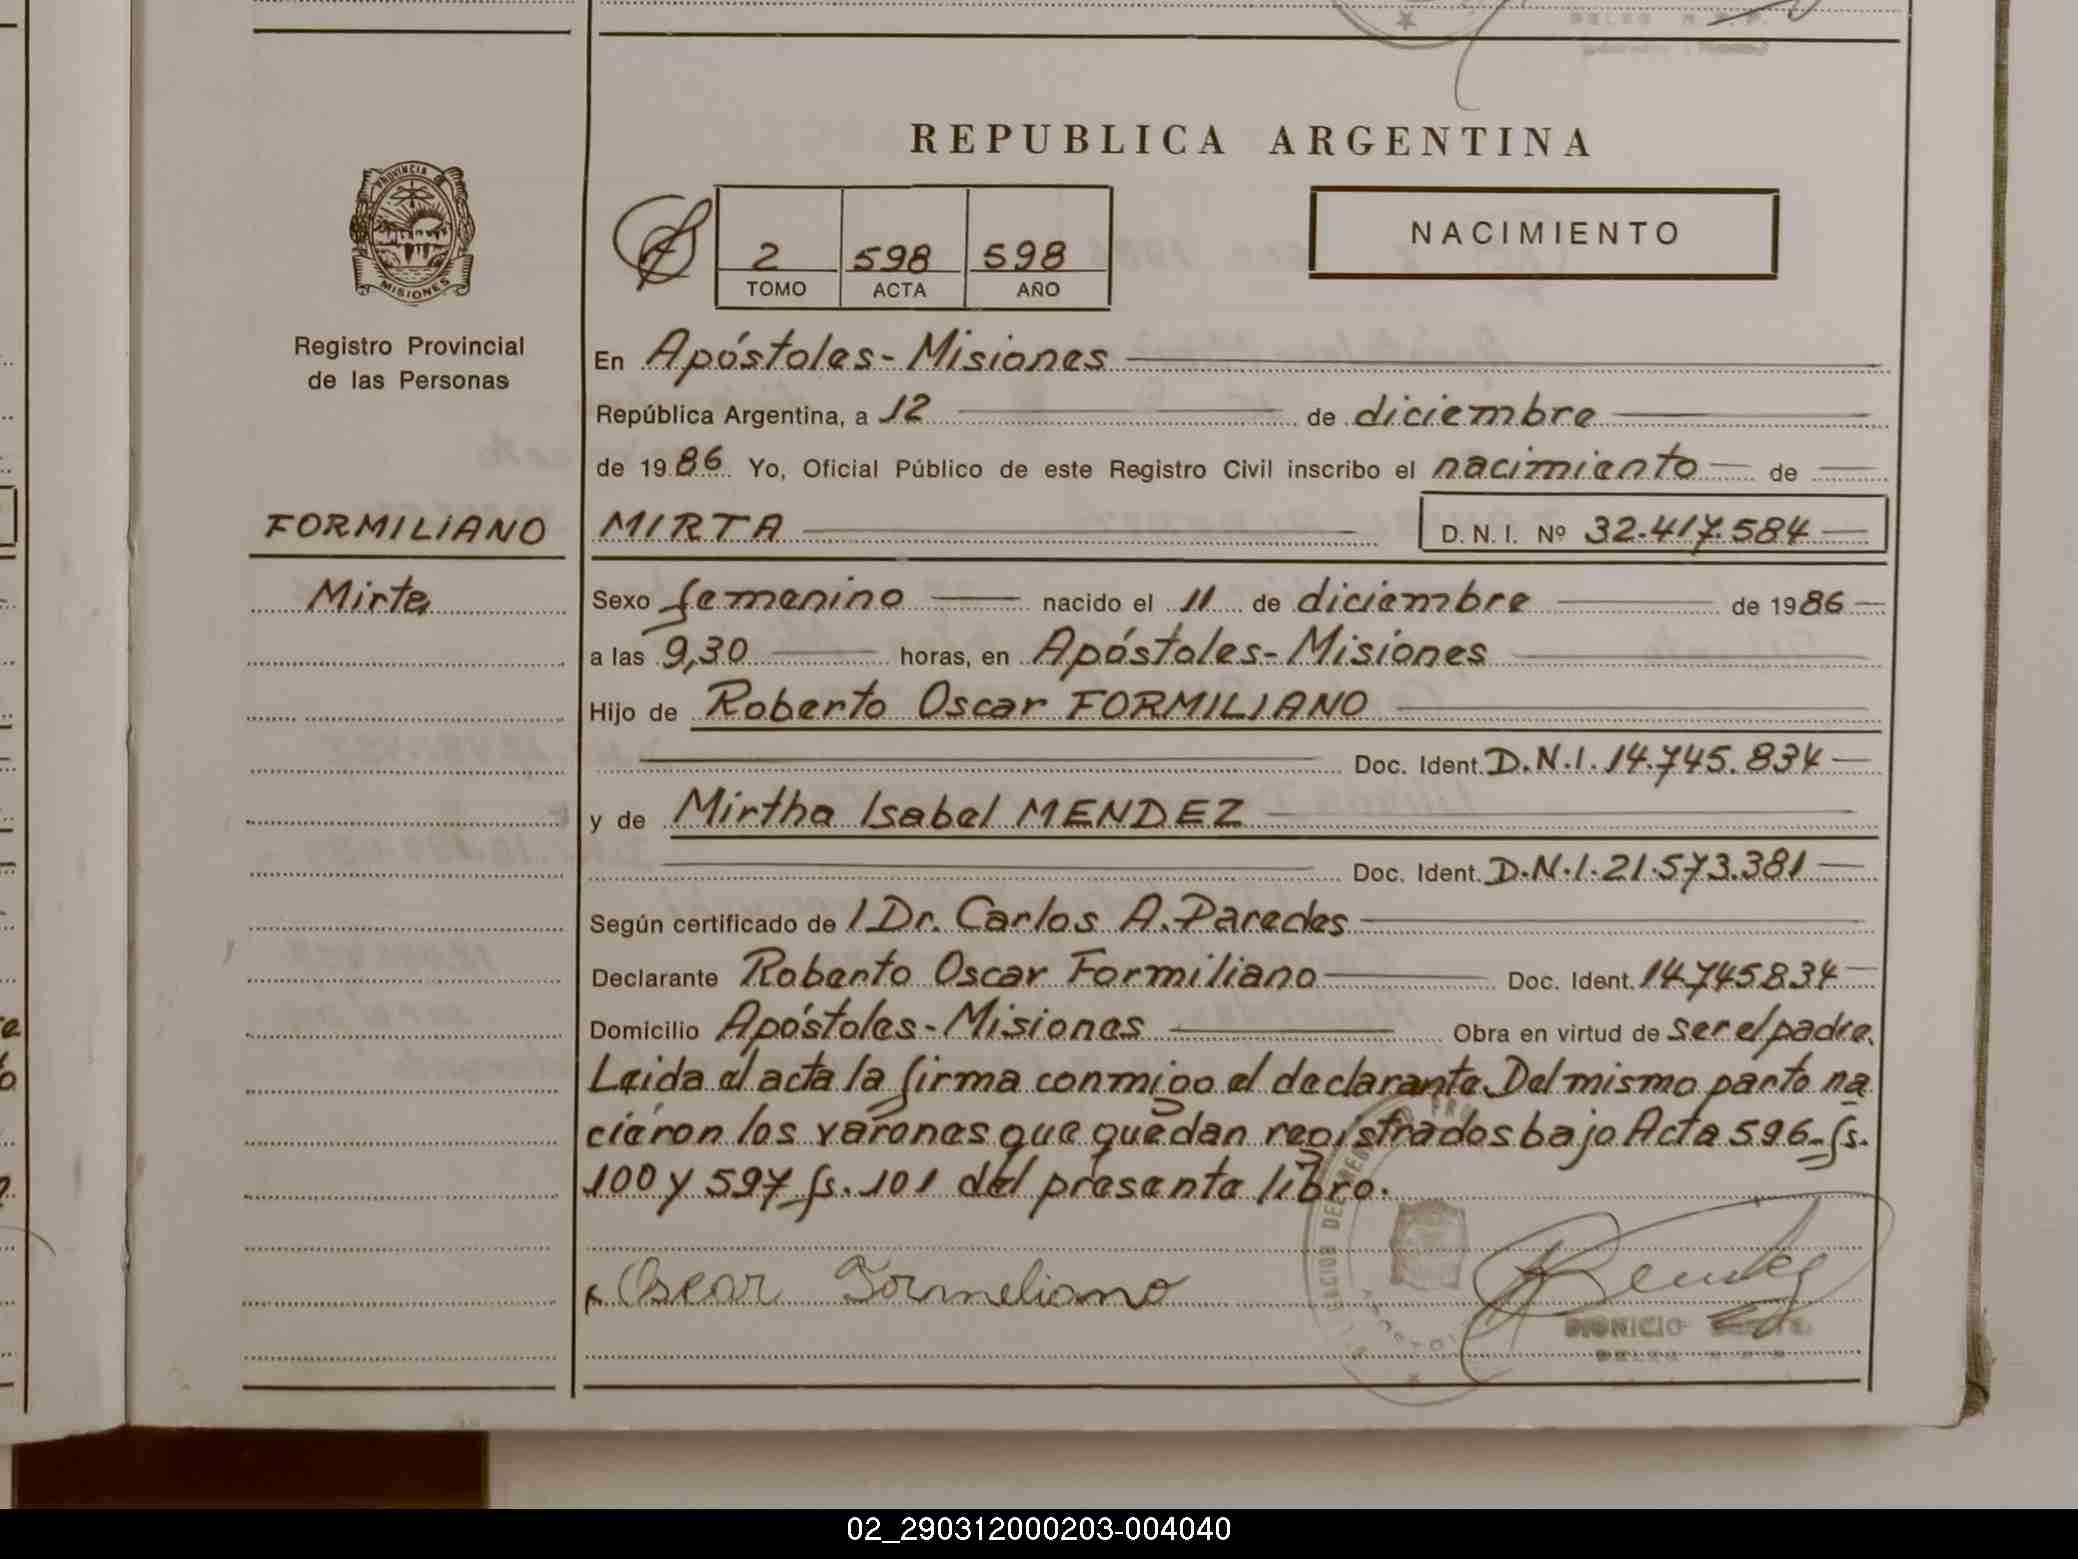 REPUBLICA ARGENTINA
PROVINCIA DE
MISIONES
Registro Provincial
de las Personas
2 598 598
TOMO ACTA AÑO
NACIMIENTO
En Apóstoles - Misiones
República Argentina, a 12 de diciembre
de 1986 Yo, Oficial Público de este Registro Civil inscribo el nacimiento de
FORMILIANO MIRTA D. N. I. Nº 32.417.584
Mirta
Sexo femenino nacido el 11 de diciembre de 1986
a las 9,30 horas, en Apóstoles - Misiones
Hijo de Roberto Oscar FORMILIANO
Doc. Ident. D.N.I. 14.745.834
y de Mirtha Isabel MENDEZ
Doc. Ident. D.N.I. 21.573.381
Según certificado de l Dr. Carlos A. Paredes
Declarante Roberto Oscar Formiliano Doc. Ident. 14.745.834
Domicilio Apóstoles - Misiones Obra en virtud de ser el padre.
Leida el acta la firma conmigo el declarante. Del mismo parto na
cieron los varones que quedan registrados bajo Acta 596 - fs.
100 y 597 fs. 101 del presente libro.
Oscar Formeliano
DIONICIO
02_290312000203-004040